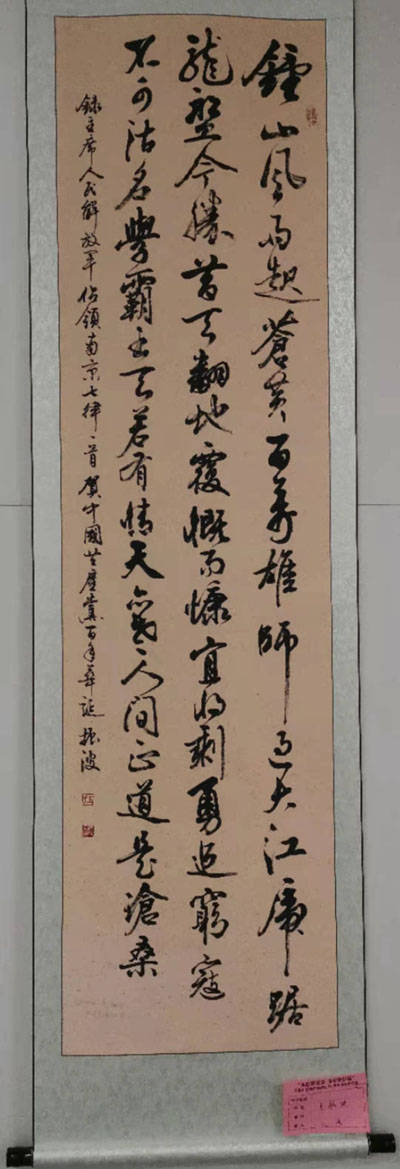 鍾山風雨起蒼黄百萬雄師過大江虎踞
龍盤今勝昔天翻地覆慨而慷宜將剩勇追窮寇
不可沽名學霸王天若有情天亦老人間正道是滄桑
録主席人民解放軍佔領南京七律一首賀中國共產黨百年華誕 振波